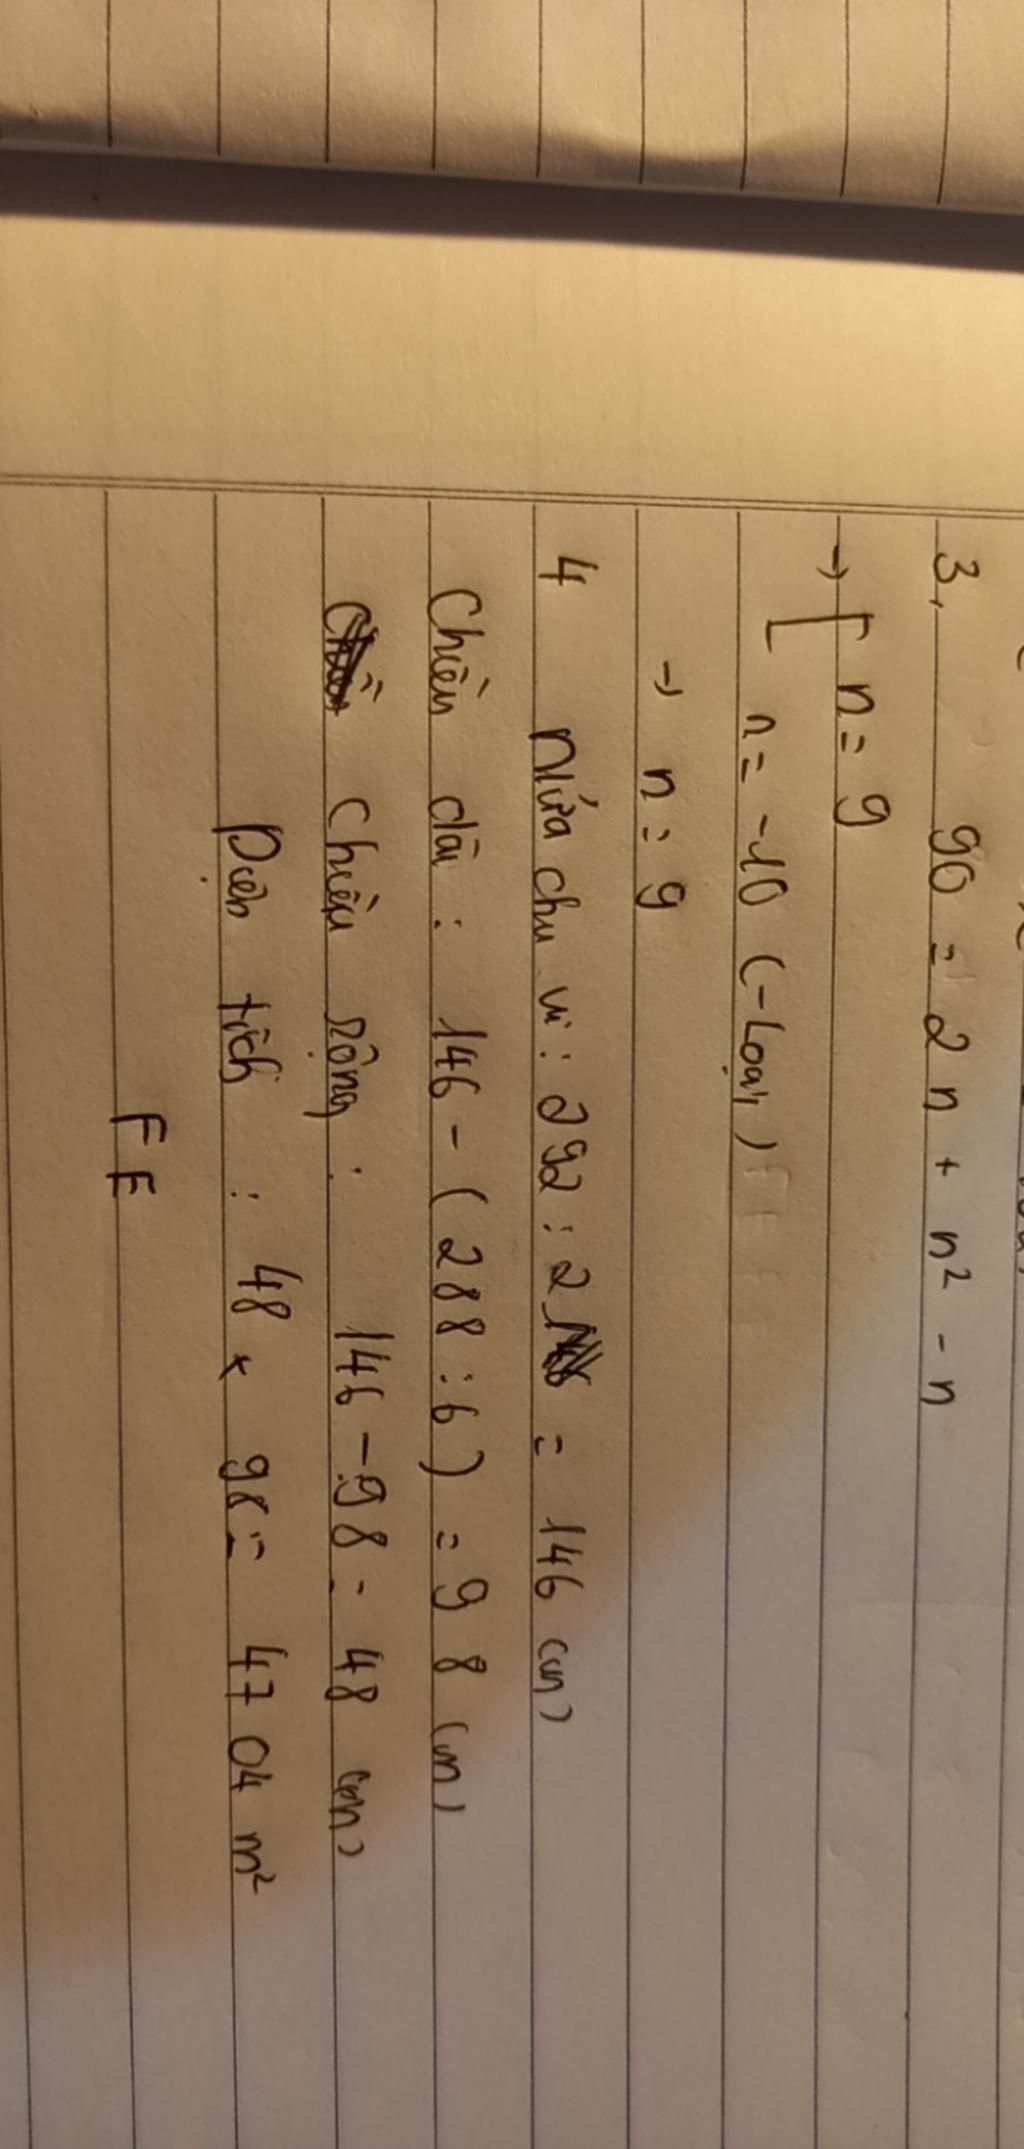 3, 90 = 2n + n² - n
→ [ n = 9
n = -10 (-Loại)
→ n = 9
4 Nửa chu vi : 292 : 2 = 146 (m)
Chiều dài : 146 - (288 : 6) = 98 (m)
Chiều rộng : 146 - 98 = 48 (m)
Diện tích : 48 x 98 = 4704 m²
FE